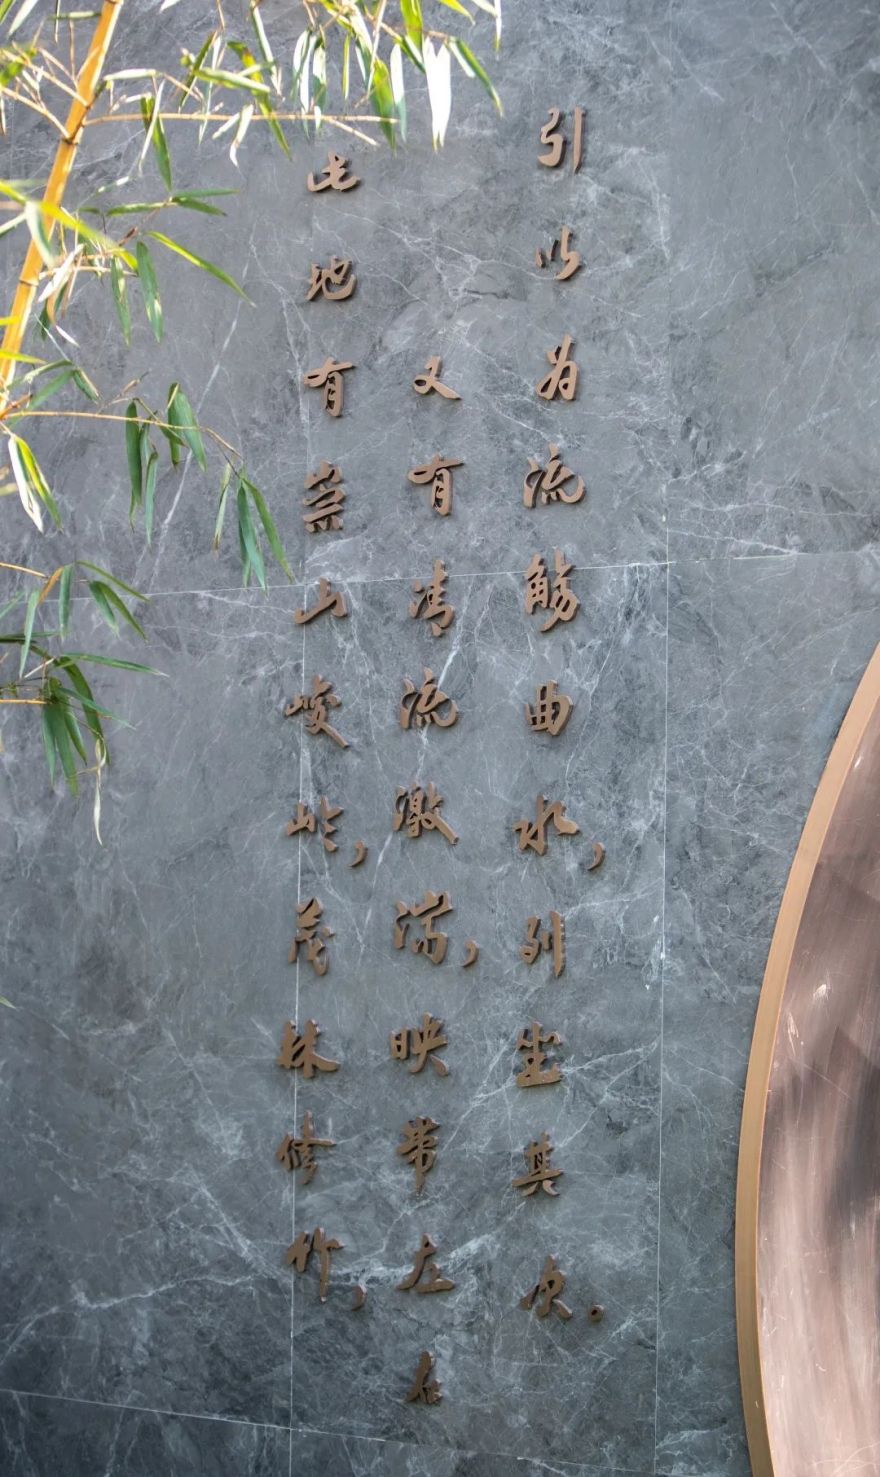 此地有崇山峻岭，茂林修竹，
又有清流激湍，映带左右
引以为流觞曲水，列坐其次。